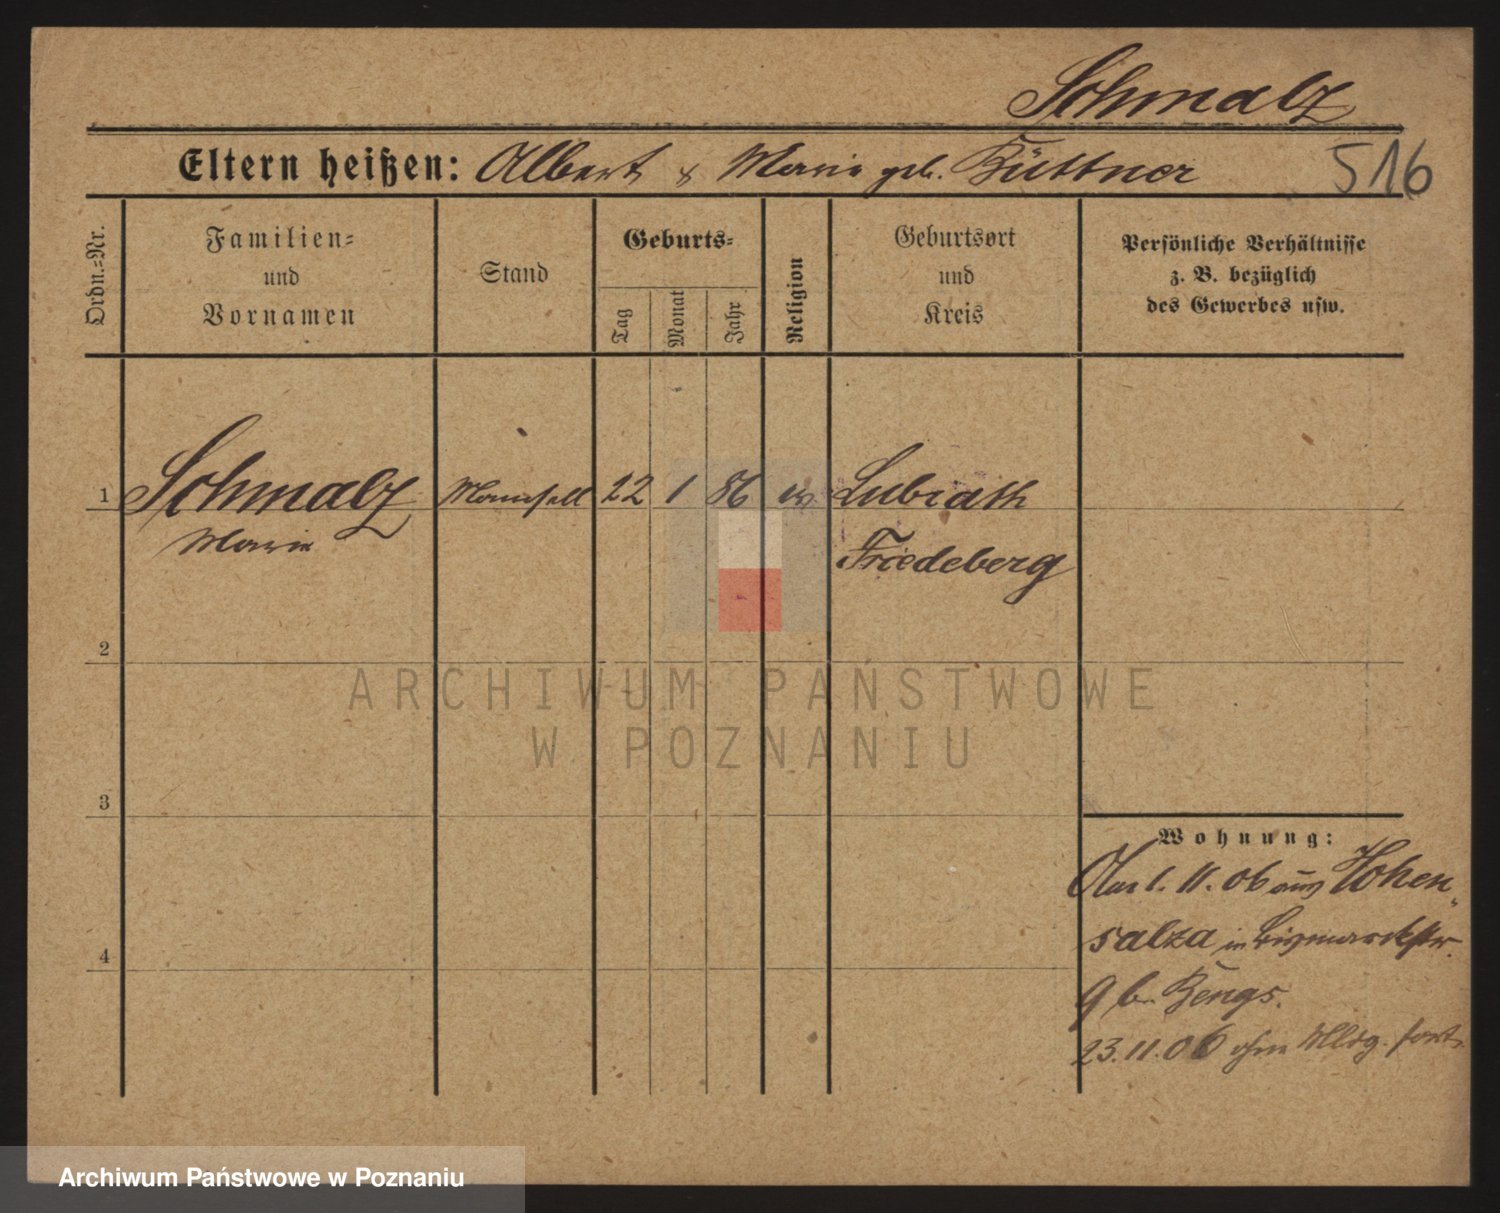 Schmalz
Eltern heißen: Albert & Marie geb. Büttner
516
Ordn.-Nr.
Familien-
und
Vornamen
Stand
Geburts-
Tag
Monat
Jahr
Religion
Geburtsort
und
Kreis
Persönliche Verhältnisse
z. B. bezüglich
des Gewerbes usw.
1 Schmalz Mamsell 22 1 86 ev Lubiath
Marie Friedeberg
2
3
4
Wohnung:
1. 11. 06 aus Hohen
salza in Bismarckstr.
9 bei
23. 11. 06 ohne Mldg. fort
ARCHIWUM PAŃSTWOWE
W POZNANIU
Archiwum Państwowe w Poznaniu